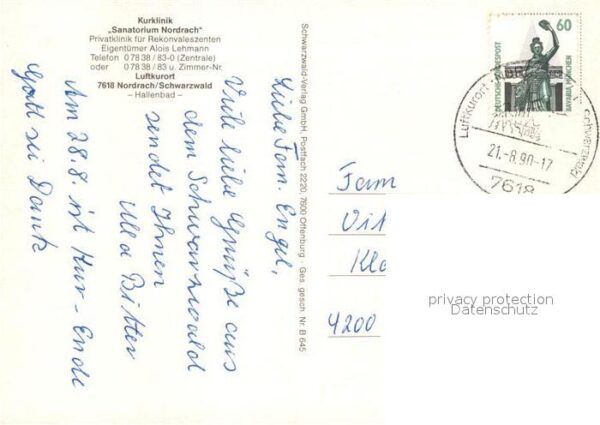 Kurklinik
„Sanatorium Nordrach"
Privatklinik für Rekonvaleszenten
Eigentümer Alois Lehmann
Telefon 0 78 38 / 83-0 (Zentrale)
oder 0 78 38 / 83 u. Zimmer-Nr.
Luftkurort
7618 Nordrach/Schwarzwald
– Hallenbad –
Liebe Fam. Engel,
Viele liebe Grüße aus
dem Schwarzwald
sendet Ihnen
Ulla Bitter
Am 28.8. ist Kur-Ende
Gott sei Dank
Schwarzwald-Verlag GmbH, Postfach 2220, 7600 Offenburg · Ges. gesch. Nr. B 645
60
DEUTSCHE BUNDESPOST
BAVARIA MÜNCHEN
Luftkurort
Schwarzwald
21.-8.90-17
7618
Fam
4200
privacy protection
Datenschutz